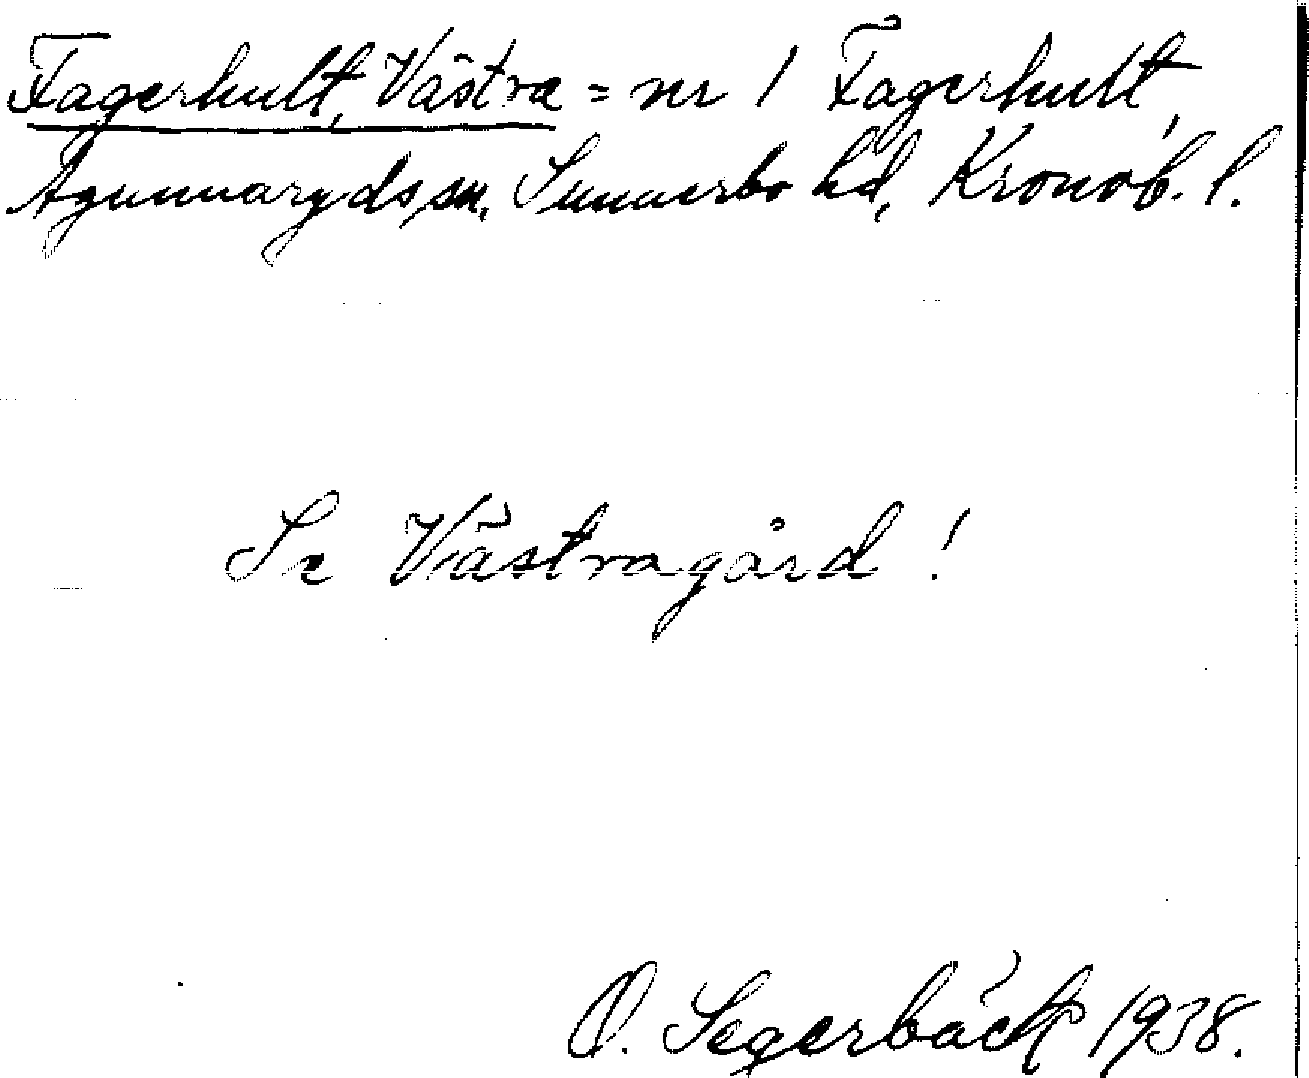 Fagerhult, Västra = nr 1 Fagerhult,
Agunnaryds sn, Sunnerbo hd, Kronob. l.
Se Västragård !
O. Segerbäck 1938.